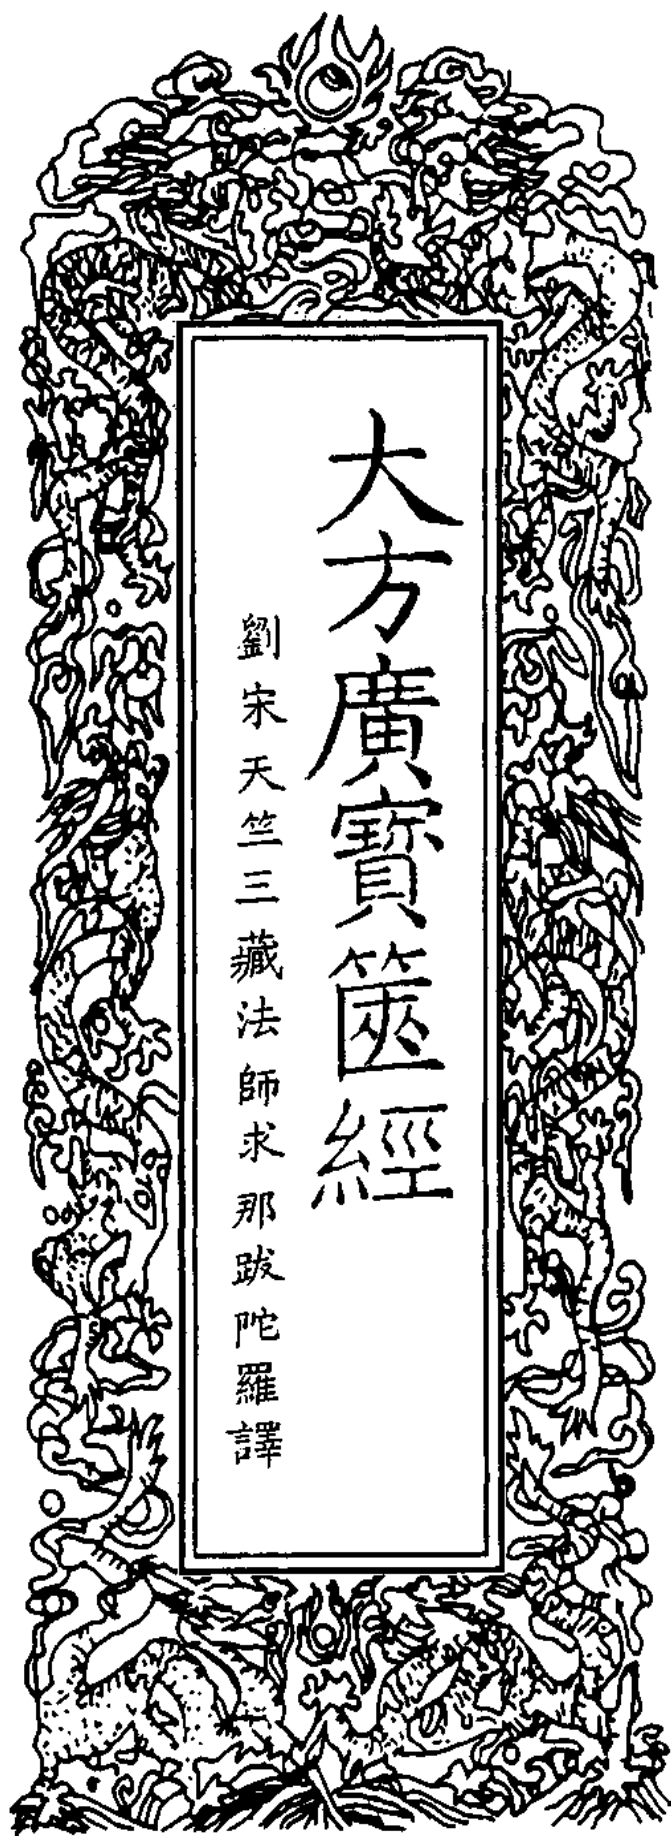 大方廣寶篋經
劉宋天竺三藏法師求那跋陀羅譯